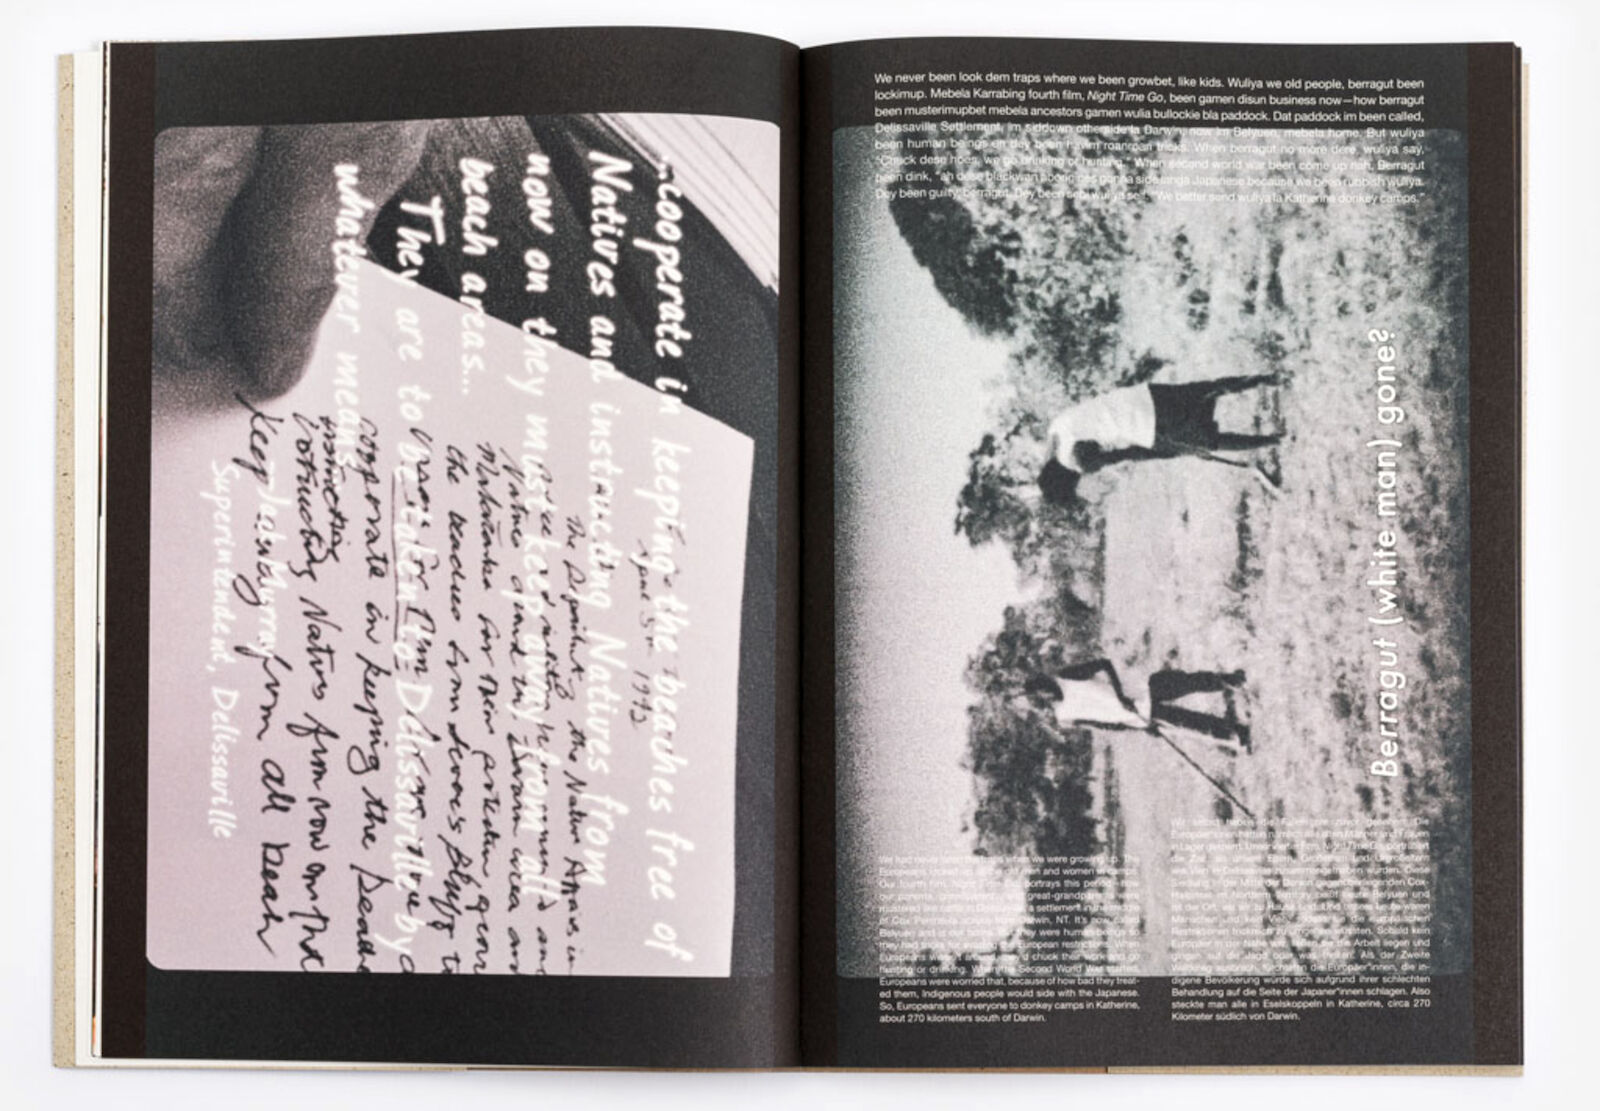 ...cooperate in keeping the beaches free of
Natives and instructing Natives from
now on they must keep away from all
beach areas...
They are to be sent to Delissaville by
whatever means
Superintendent, Delissaville
1942
the Native Affairs, in
cooperate in keeping the
instructing Natives from now on that
keep away from all beach
We never been look dem traps where we been growbet, like kids. Wuliya we old people, berragut been
lockimup. Mebela Karrabing fourth film, Night Time Go, been gamen disun business now—how berragut
been musterimupbet mebela ancestors gamen wulia bullockie bla paddock. Dat paddock im been called,
Delissaville Settlement, im siddown otherside la Darwin now im Belyuen, mebela home. But wuliya
been human beings en dey been havim roanroan tricks. When berragut no more dere, wuliya say,
"Chuck dese hoes, we go drinking or hunting." When second world war been come up nah, Berragut
been dink, "ah dese blackwan aborigines gonna side langa Japanese because we been rubbish wuliya.
Dey been guilty, berragut. Dey been sebi wuliya self. "We better send wuliya la Katherine donkey camps."
Berragut (white man) gone?
We had never seen the traps when we were growing up. The
Europeans locked up all the old men and women in camps.
Our fourth film, Night Time Go, portrays this period—how
our parents, grandparents, and great-grandparents were
mustered like cattle in Delissaville, a settlement in the middle
of Cox Peninsula across from Darwin, NT. It's now called
Belyuen and is our home. But they were human beings so
they had tricks for evading the European restrictions. When
Europeans weren't around, they'd chuck their work and go
hunting or drinking. When the Second World War started,
Europeans were worried that, because of how bad they treat-
ed them, Indigenous people would side with the Japanese.
So, Europeans sent everyone to donkey camps in Katherine,
about 270 kilometers south of Darwin.
Wir selbst haben die Fallen nie zuvor gesehen. Die
Europäer*innen hatten nämlich alle alten Männer und Frauen
in Lager gesperrt. Unser vierter Film, Night Time Go, porträtiert
die Zeit, als unsere Eltern, Großeltern und Urgroßeltern
wie Vieh in Delissaville zusammengetrieben wurden. Diese
Siedlung in der Mitte der Darwin gegenüberliegenden Cox-
Halbinsel im Northern Territory heißt heute Belyuen und
ist der Ort, wo wir zu Hause sind. Und unsere Leute waren
Menschen und kein Vieh, sodass sie die europäischen
Restriktionen trickreich zu umgehen wussten. Sobald kein
Europäer in der Nähe war, ließen sie die Arbeit liegen und
gingen auf die Jagd oder was trinken. Als der Zweite
Weltkrieg ausbrach, fürchteten die Europäer*innen, die in-
digene Bevölkerung würde sich aufgrund ihrer schlechten
Behandlung auf die Seite der Japaner*innen schlagen. Also
steckte man alle in Eselskoppeln in Katherine, circa 270
Kilometer südlich von Darwin.